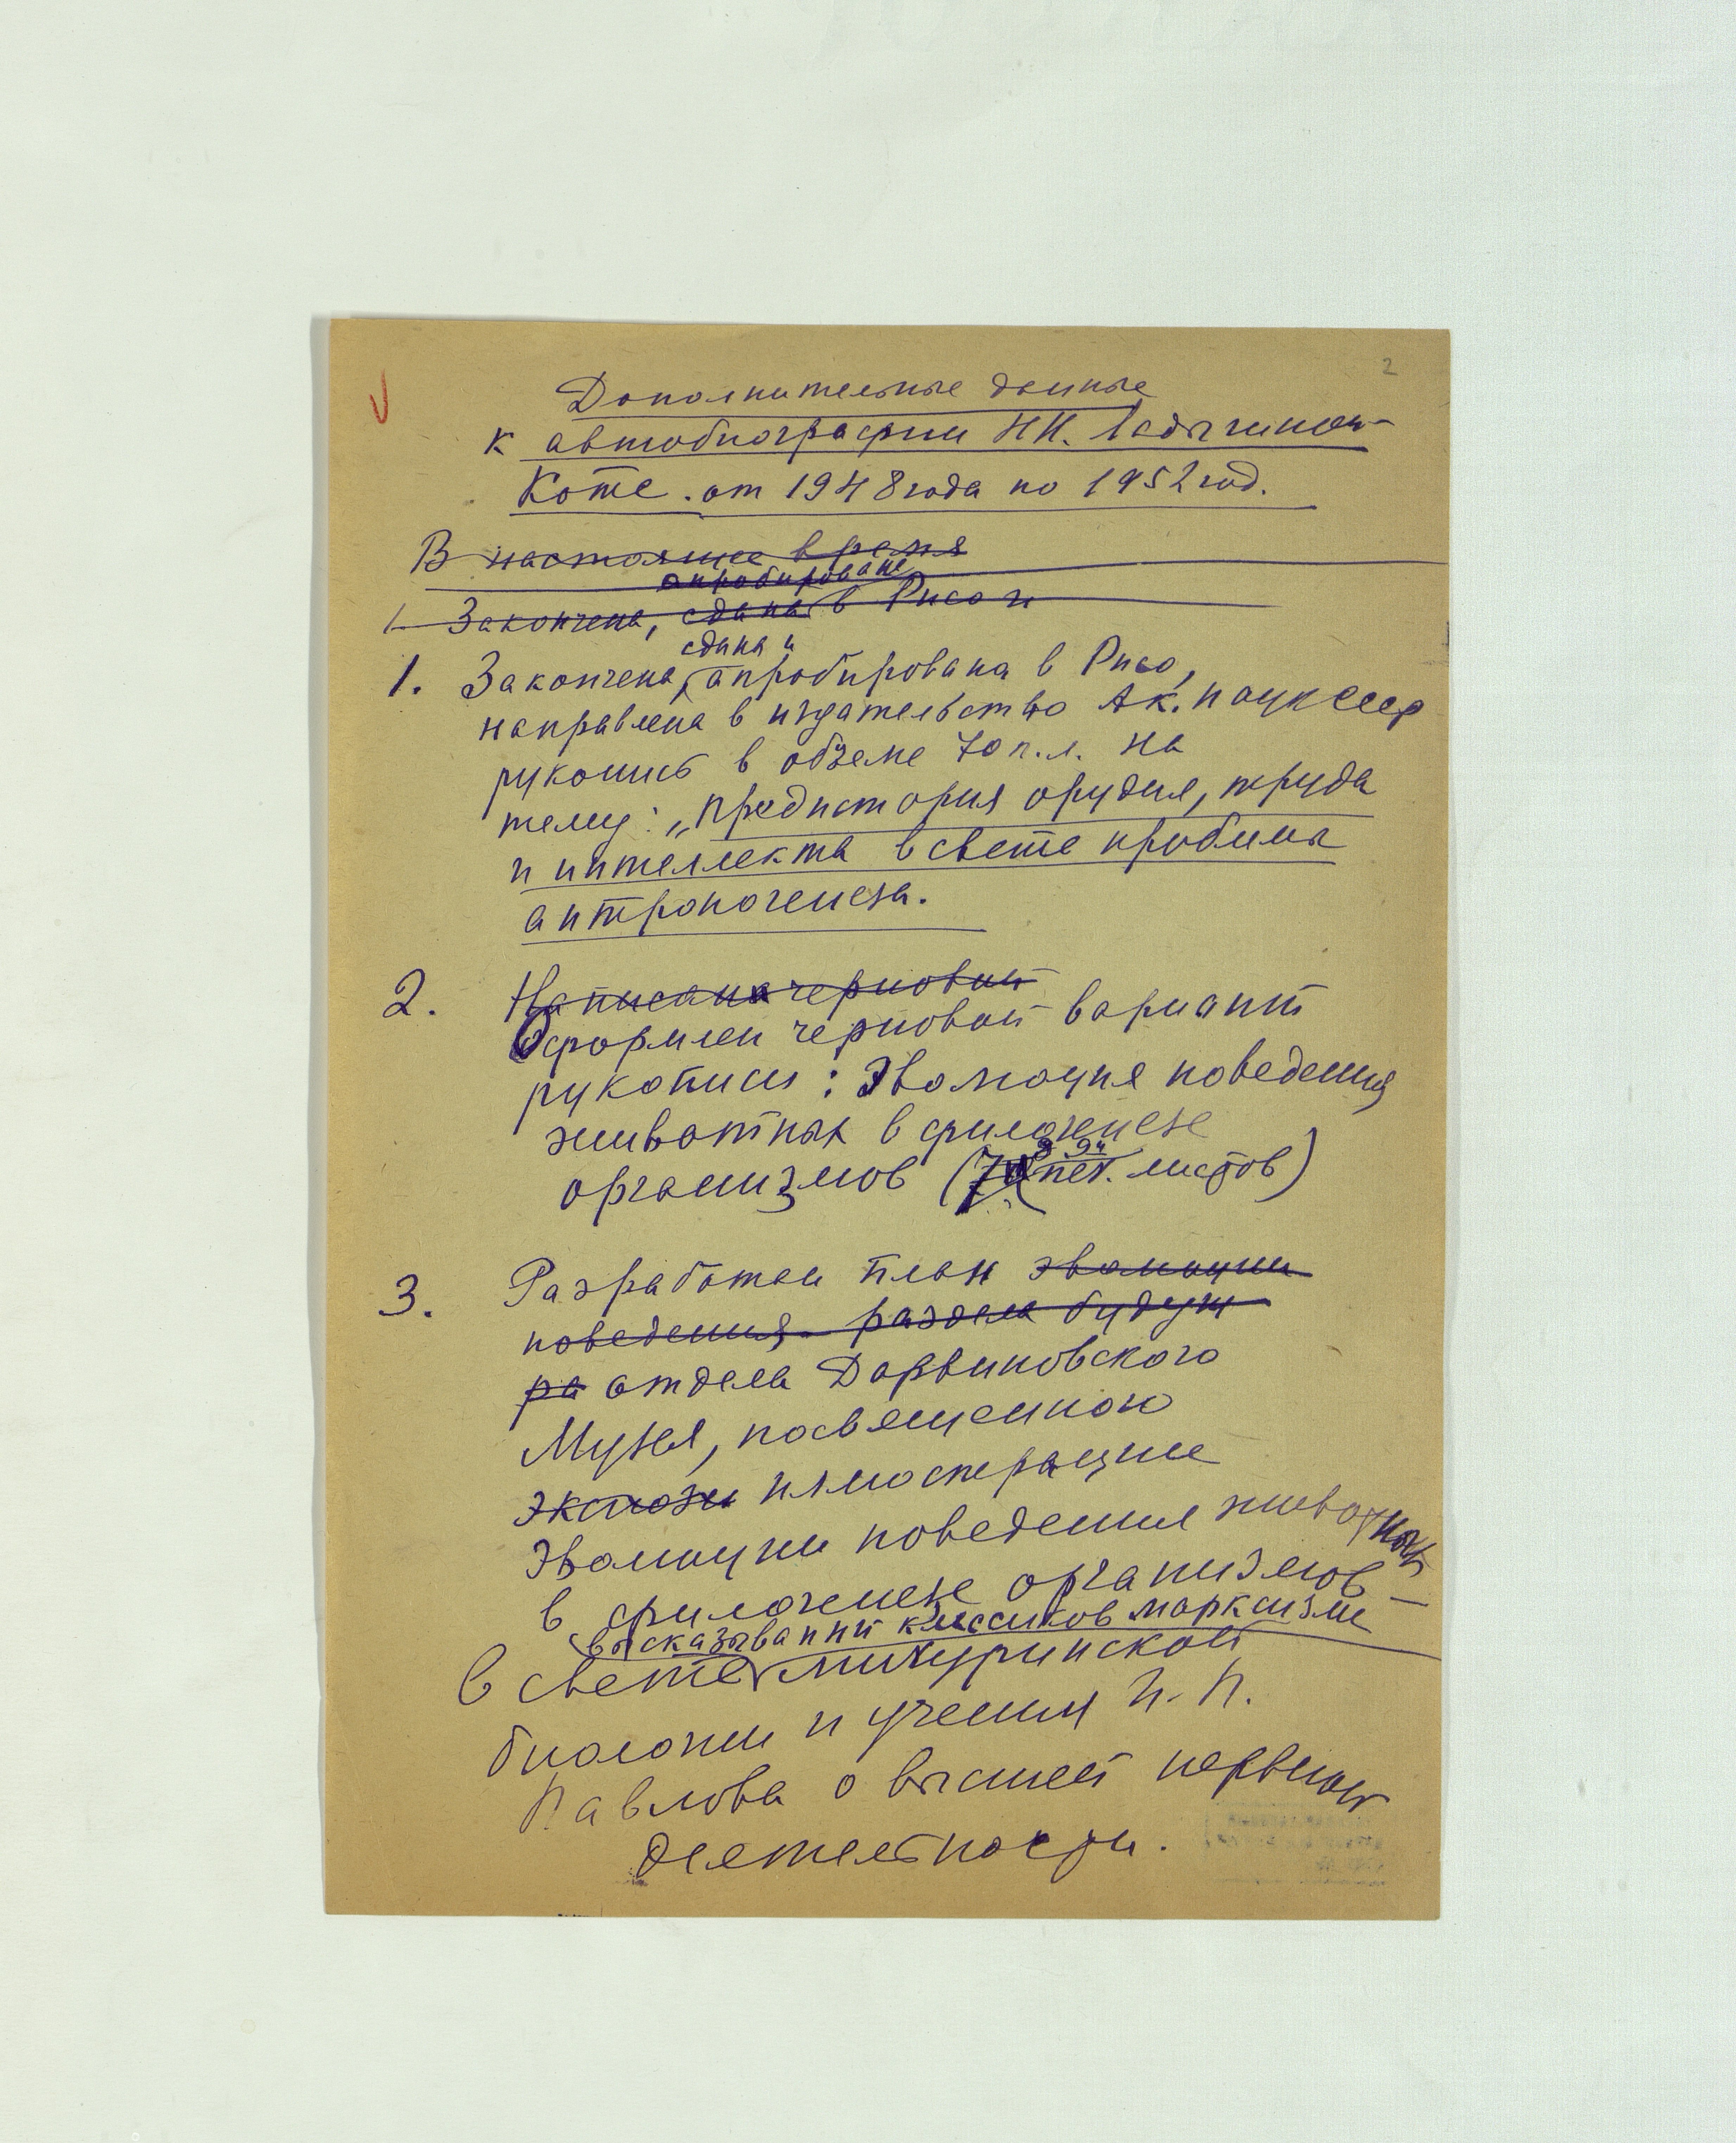 2
Дополнительные данные
к автобиографии Н.Н. Ладыгиной-
Котс. от 1948 года по 1952 год.
В настоящее время
апробирована
1. Закончена, сдана в Рисо и
сдана и
1. Закончена, апробирована в Рисо,
направлена в издательство Ак. наук СССР
рукопись в объеме 70 п.л. на
тему: „Предистория орудия, труда
и интеллекта в свете проблемы
антропогенеза.
2. Написана черновик
Оформлен черновой вариант
рукописи: Эволюция поведения
животных в филогенезе
организмов (печ. листов)
3. Разработан план эволюции
поведения раздела будущ
ра отдела Дарвиновского
Музея, посвященного
экспози иллюстрации
Эволюции поведения животных
в филогенезе организмов –
высказываний классиков марксизма
в свете мичуринской
биологии и учения И. П.
Павлова о высшей нервной
деятельности.